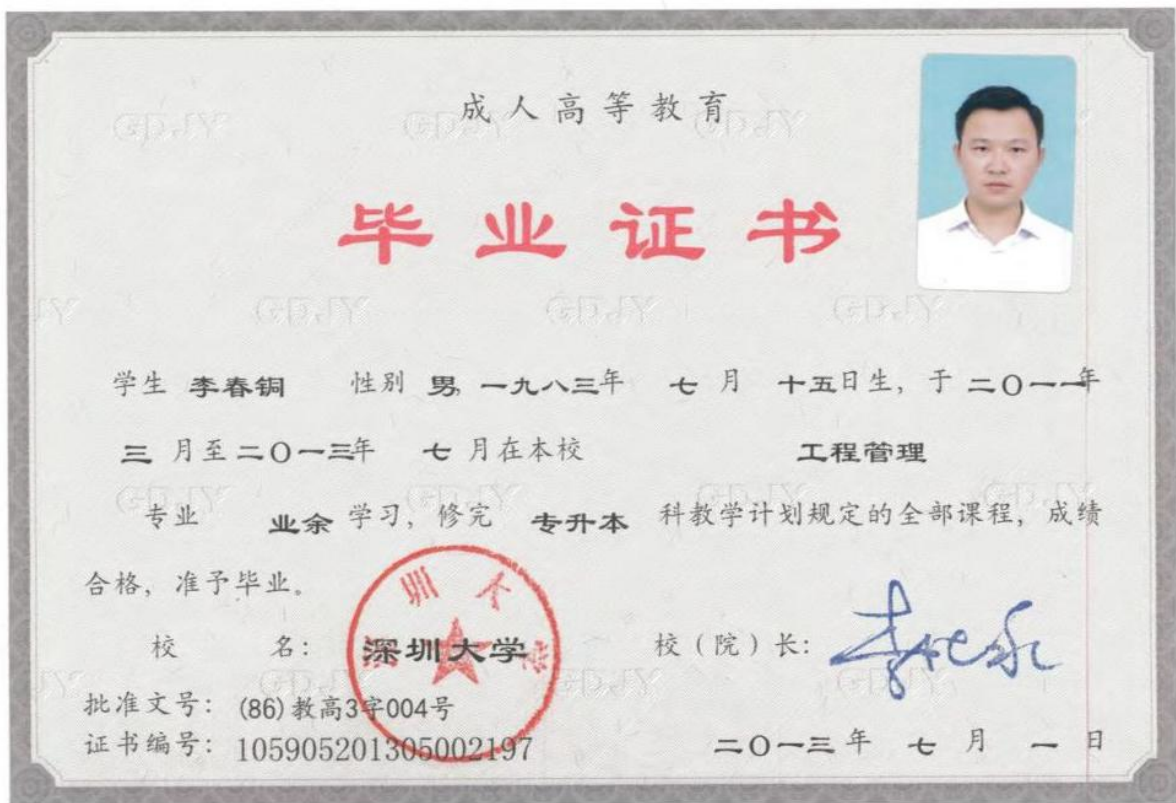 成人高等教育
毕业证书
学生 李春铜 性别 男, 一九八三年 七 月 十五日生, 于 二〇一一年
三 月至二〇一三年 七 月在本校 工程管理
专业 业余 学习, 修完 专升本 科教学计划规定的全部课程, 成绩
合格, 准予毕业。
校 名: 深圳大学 校(院)长:
批准文号: (86)教高3字004号
证书编号: 105905201305002197 二〇一三年 七 月 一 日
深圳大学
GDJY